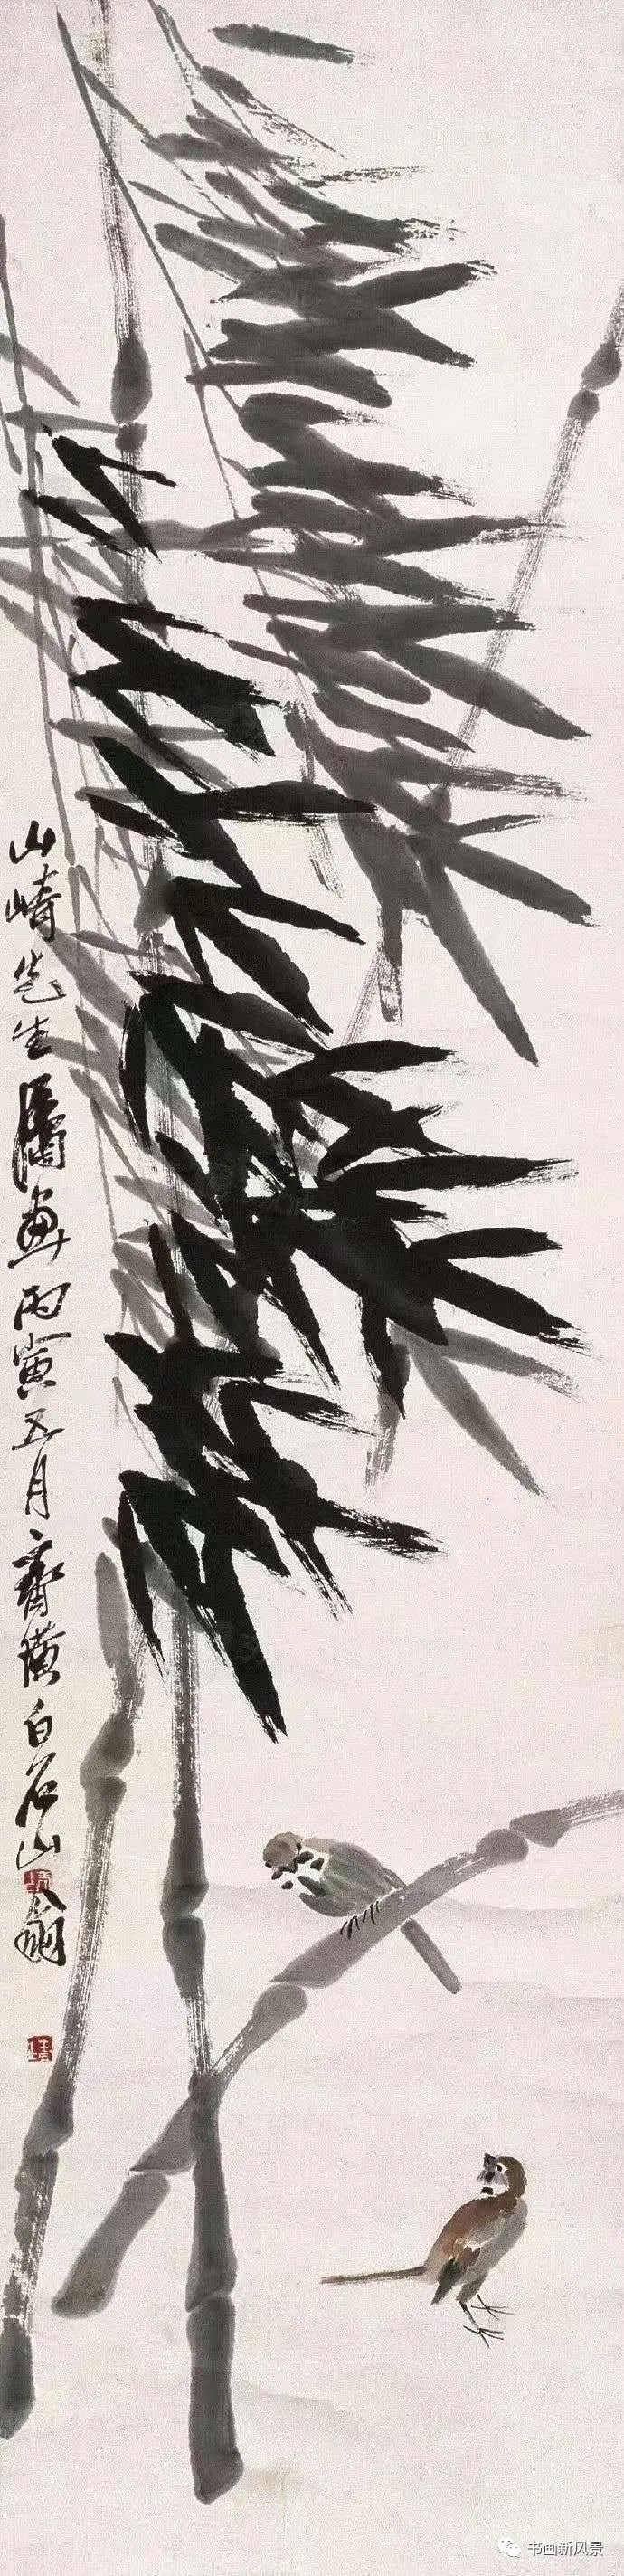 山崎先生属画丙寅五月齐璜白石山翁
书画新风景